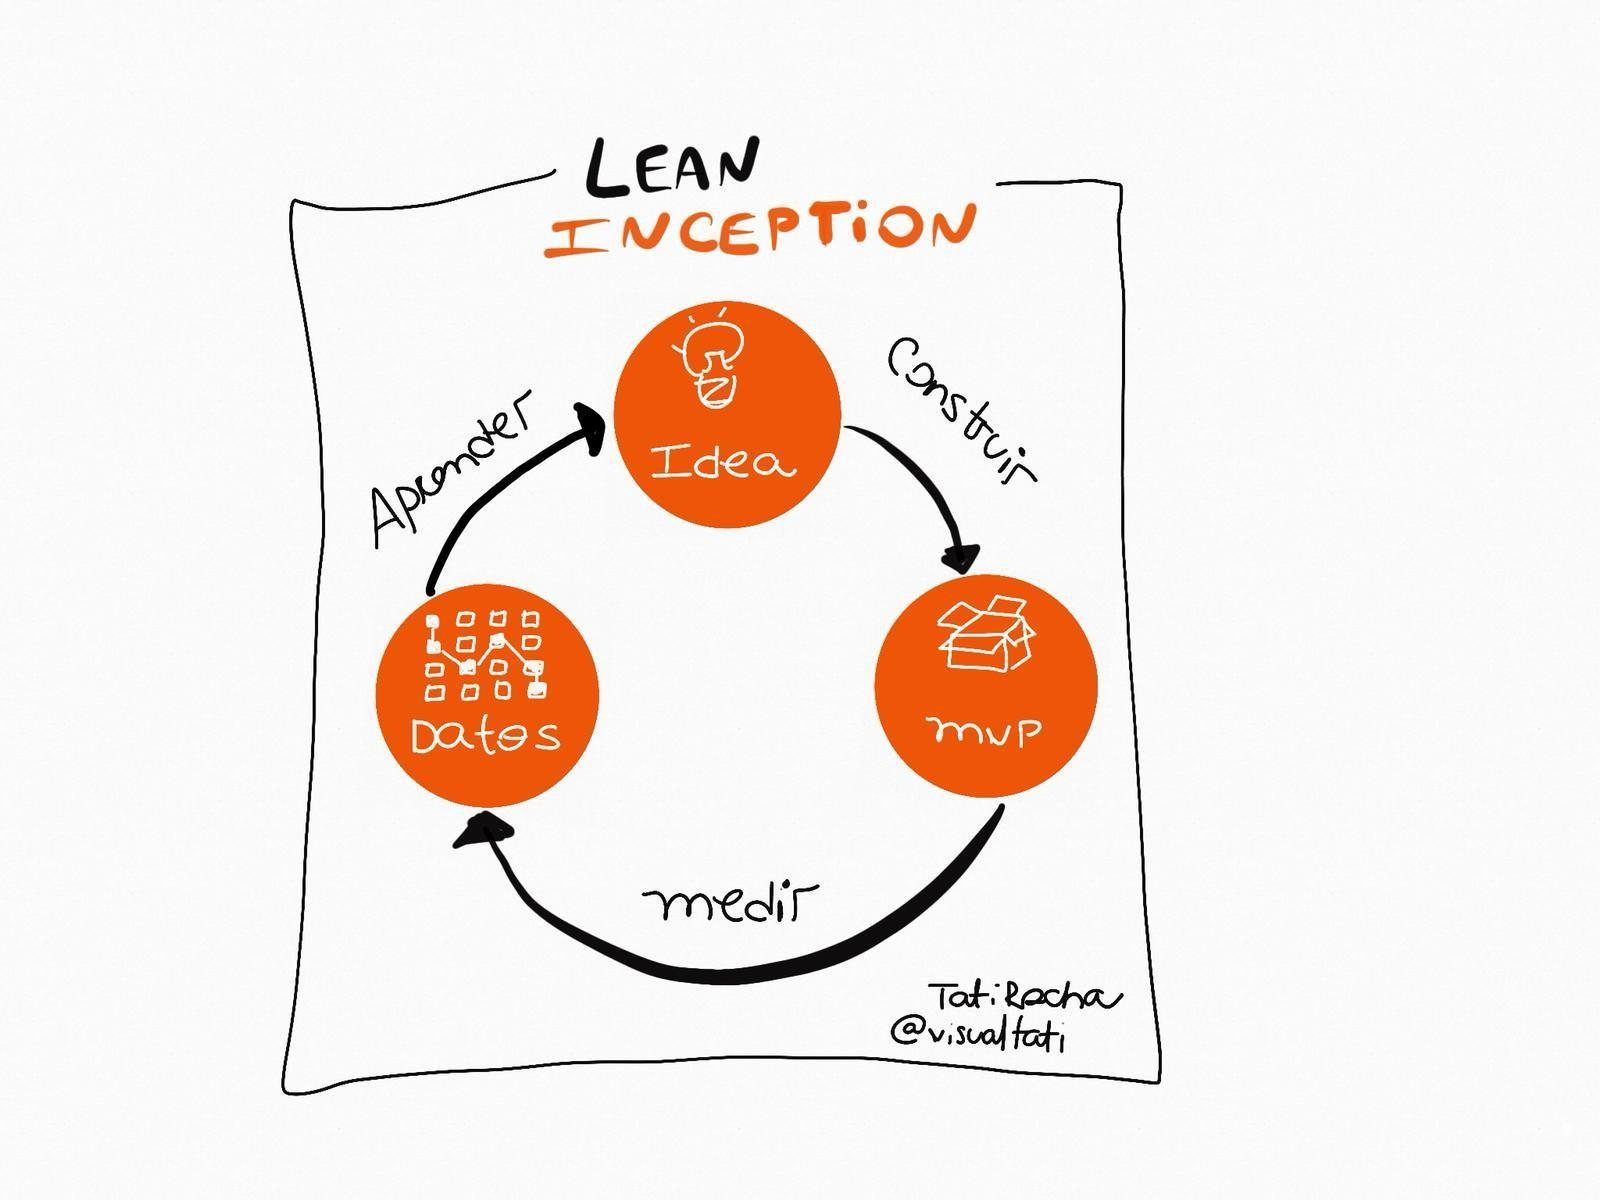 LEAN
INCEPTION
Idea
Construir
MVP
medir
Datos
Aprender
Tati Rocha
@visualtati